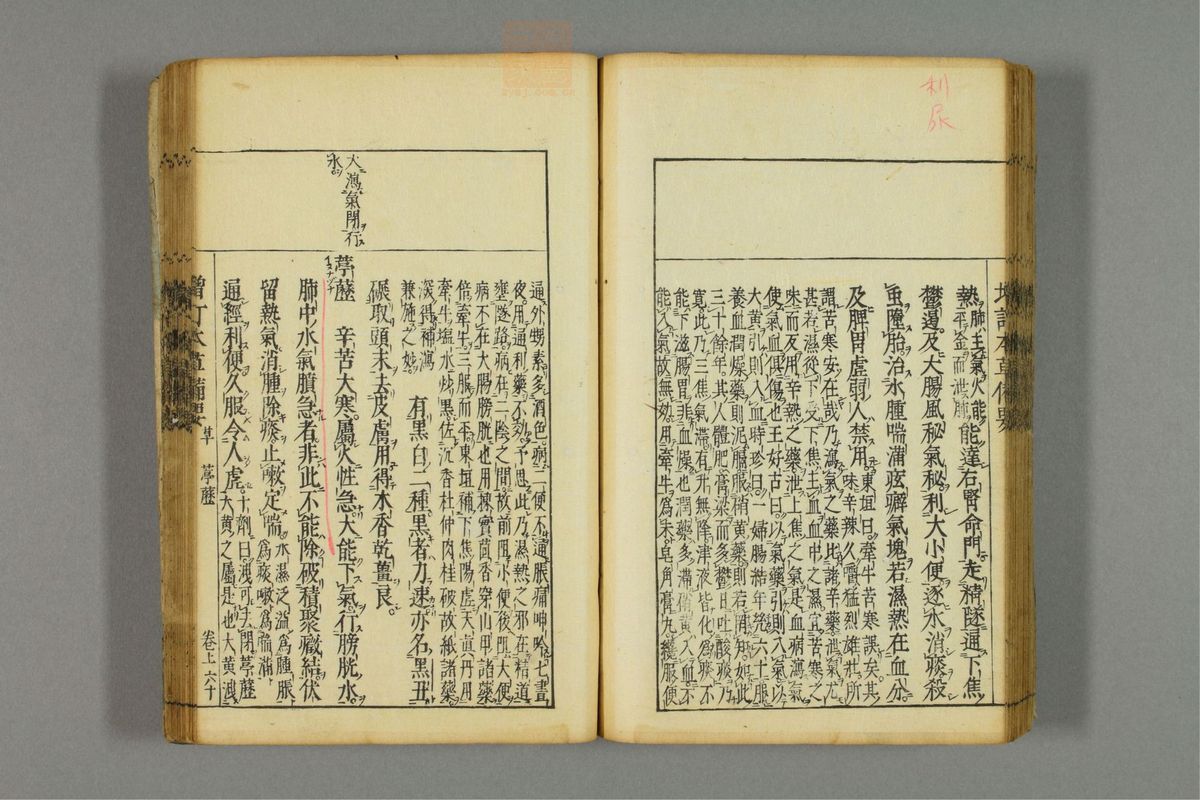 利
尿
增訂本草備要
熱肺主氣火能平金而泄肺能達右腎命門走精隧通下焦
鬱遏及大腸風秘氣秘利大小便逐水消痰殺
虫墮胎治水腫喘滿痃癖氣塊若濕熱在血分
及脾胃虛弱人禁用東垣曰牽牛苦寒誤矣其味辛辣久嚼猛烈雄壯所
謂苦寒安在哉乃瀉氣之藥比諸辛藥泄氣尤
甚若濕從下受下焦主血血中之濕宜苦寒之
味而反用辛熱之藥泄上焦之氣是血病瀉氣
使氣血俱傷也王好古曰以氣藥引則入氣以
大黃引則入血時珍曰一婦腸結年幾六十服
養血潤燥藥則泥膈服硝黃藥則若罔知如此
三十餘年其人體肥膏梁而多鬱日吐酸痰乃
寛此乃三焦氣滯有升無降津液皆化為痰不
能下滋腸胃非血燥也潤藥多滯硝黃入血不
能入氣故無効用牽牛為末皂角膏丸纔服便
通外甥素多酒色病二便不通脹痛呻吟七晝
夜用通利藥不効予思此乃濕熱之邪在精道
壅隧路病在二陰之間故前阻小便後阻大便
病不在大腸膀胱也用楝實茴香穿山甲諸藥
倍牽牛三服而平東垣補下焦陽虛天真丹用
牽牛塩水炒黑佐沉香杜仲肉桂破故紙諸藥
深得補瀉兼施之妙有黑白二種黑者力速亦名黑丑
碾取頭末去皮膚用得木香乾薑良
大瀉氣閉行
水
葶藶 辛苦大寒屬火性急大能下氣行膀胱水
肺中水氣膹急者非此不能除破積聚癥結伏
留熱氣消腫除痰止嗽定喘水濕泛溢為腫脹為痰嗽為喘滿
通經利便久服令人虛十劑曰洩可去閉葶藶大黃之屬是也大黃洩
增訂本草備要 草 葶藶 卷上 六十